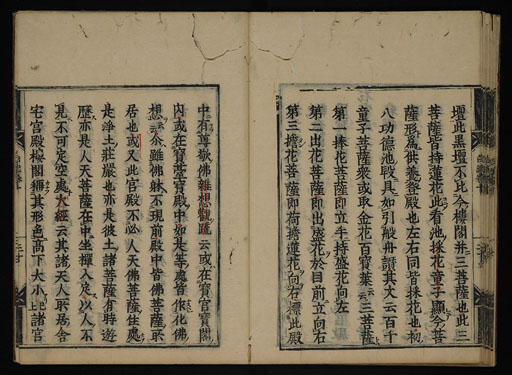 壇此黒壇不比今樓閣并三菩薩也此三
菩薩皆持蓮花此看池採花童子顯今菩
薩形爲供養殿也左右同皆採花也初
八功德池殿具如引駛舟讃其文云百千
童子菩薩衆或取金花百寶葉云三菩薩
第一捧花菩薩即立手持盛花向左
第二出花菩薩即出盛花於目前立向右
第三擔花菩薩即荷擔蓮花向右標此殿
中有尊敬佛雜想觀䟽云或在寶宮寶閣
內或在寶菩寶殿中如是等處皆作化佛
想云今雖佛躰不現前殿中皆佛菩薩聚
居也或又此宮殿不必人天佛菩薩住處
是淨土莊嚴也亦是彼土諸菩薩有時遊
歷亦是人天菩薩在中坐禪入定以人不
見不可定空處大經云其諸天人所居舍
宅宮殿樓閣稱其形色高下大小上諸宮